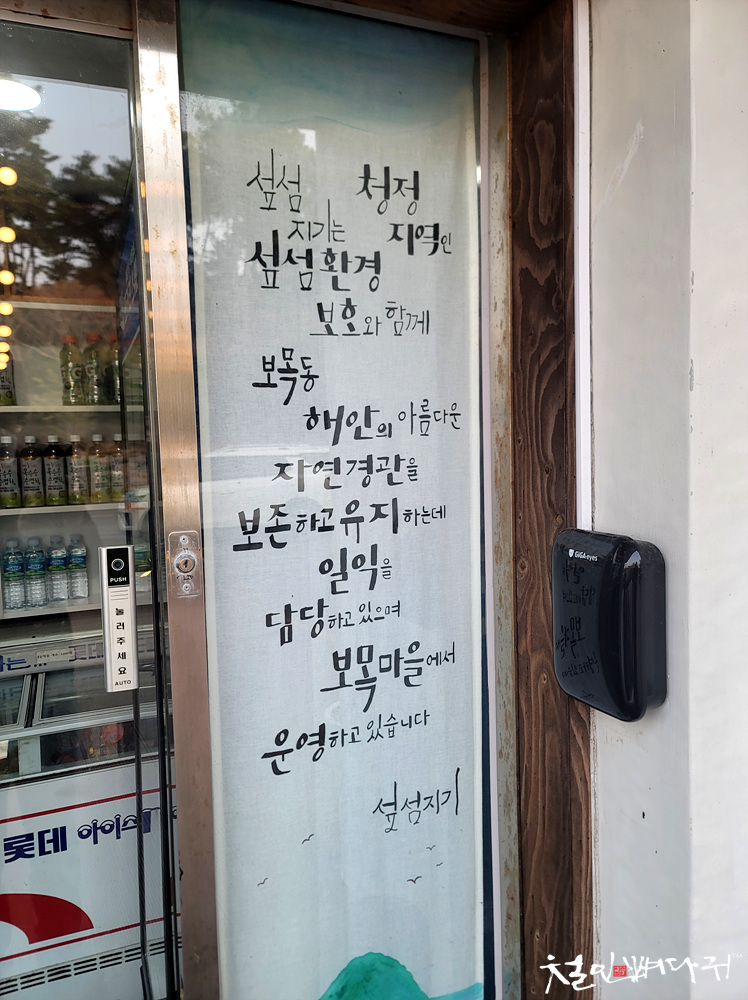 섶섬 청정
지기는 지역인
섶섬환경
보호와 함께
보목동
해안의 아름다운
자연경관을
보존하고 유지하는데
일익을
담당하고 있으며
보목마을에서
운영하고 있습니다
섶섬지기
GiGA eyes
PUSH
눌러주세요
AUTO
롯데 아이스